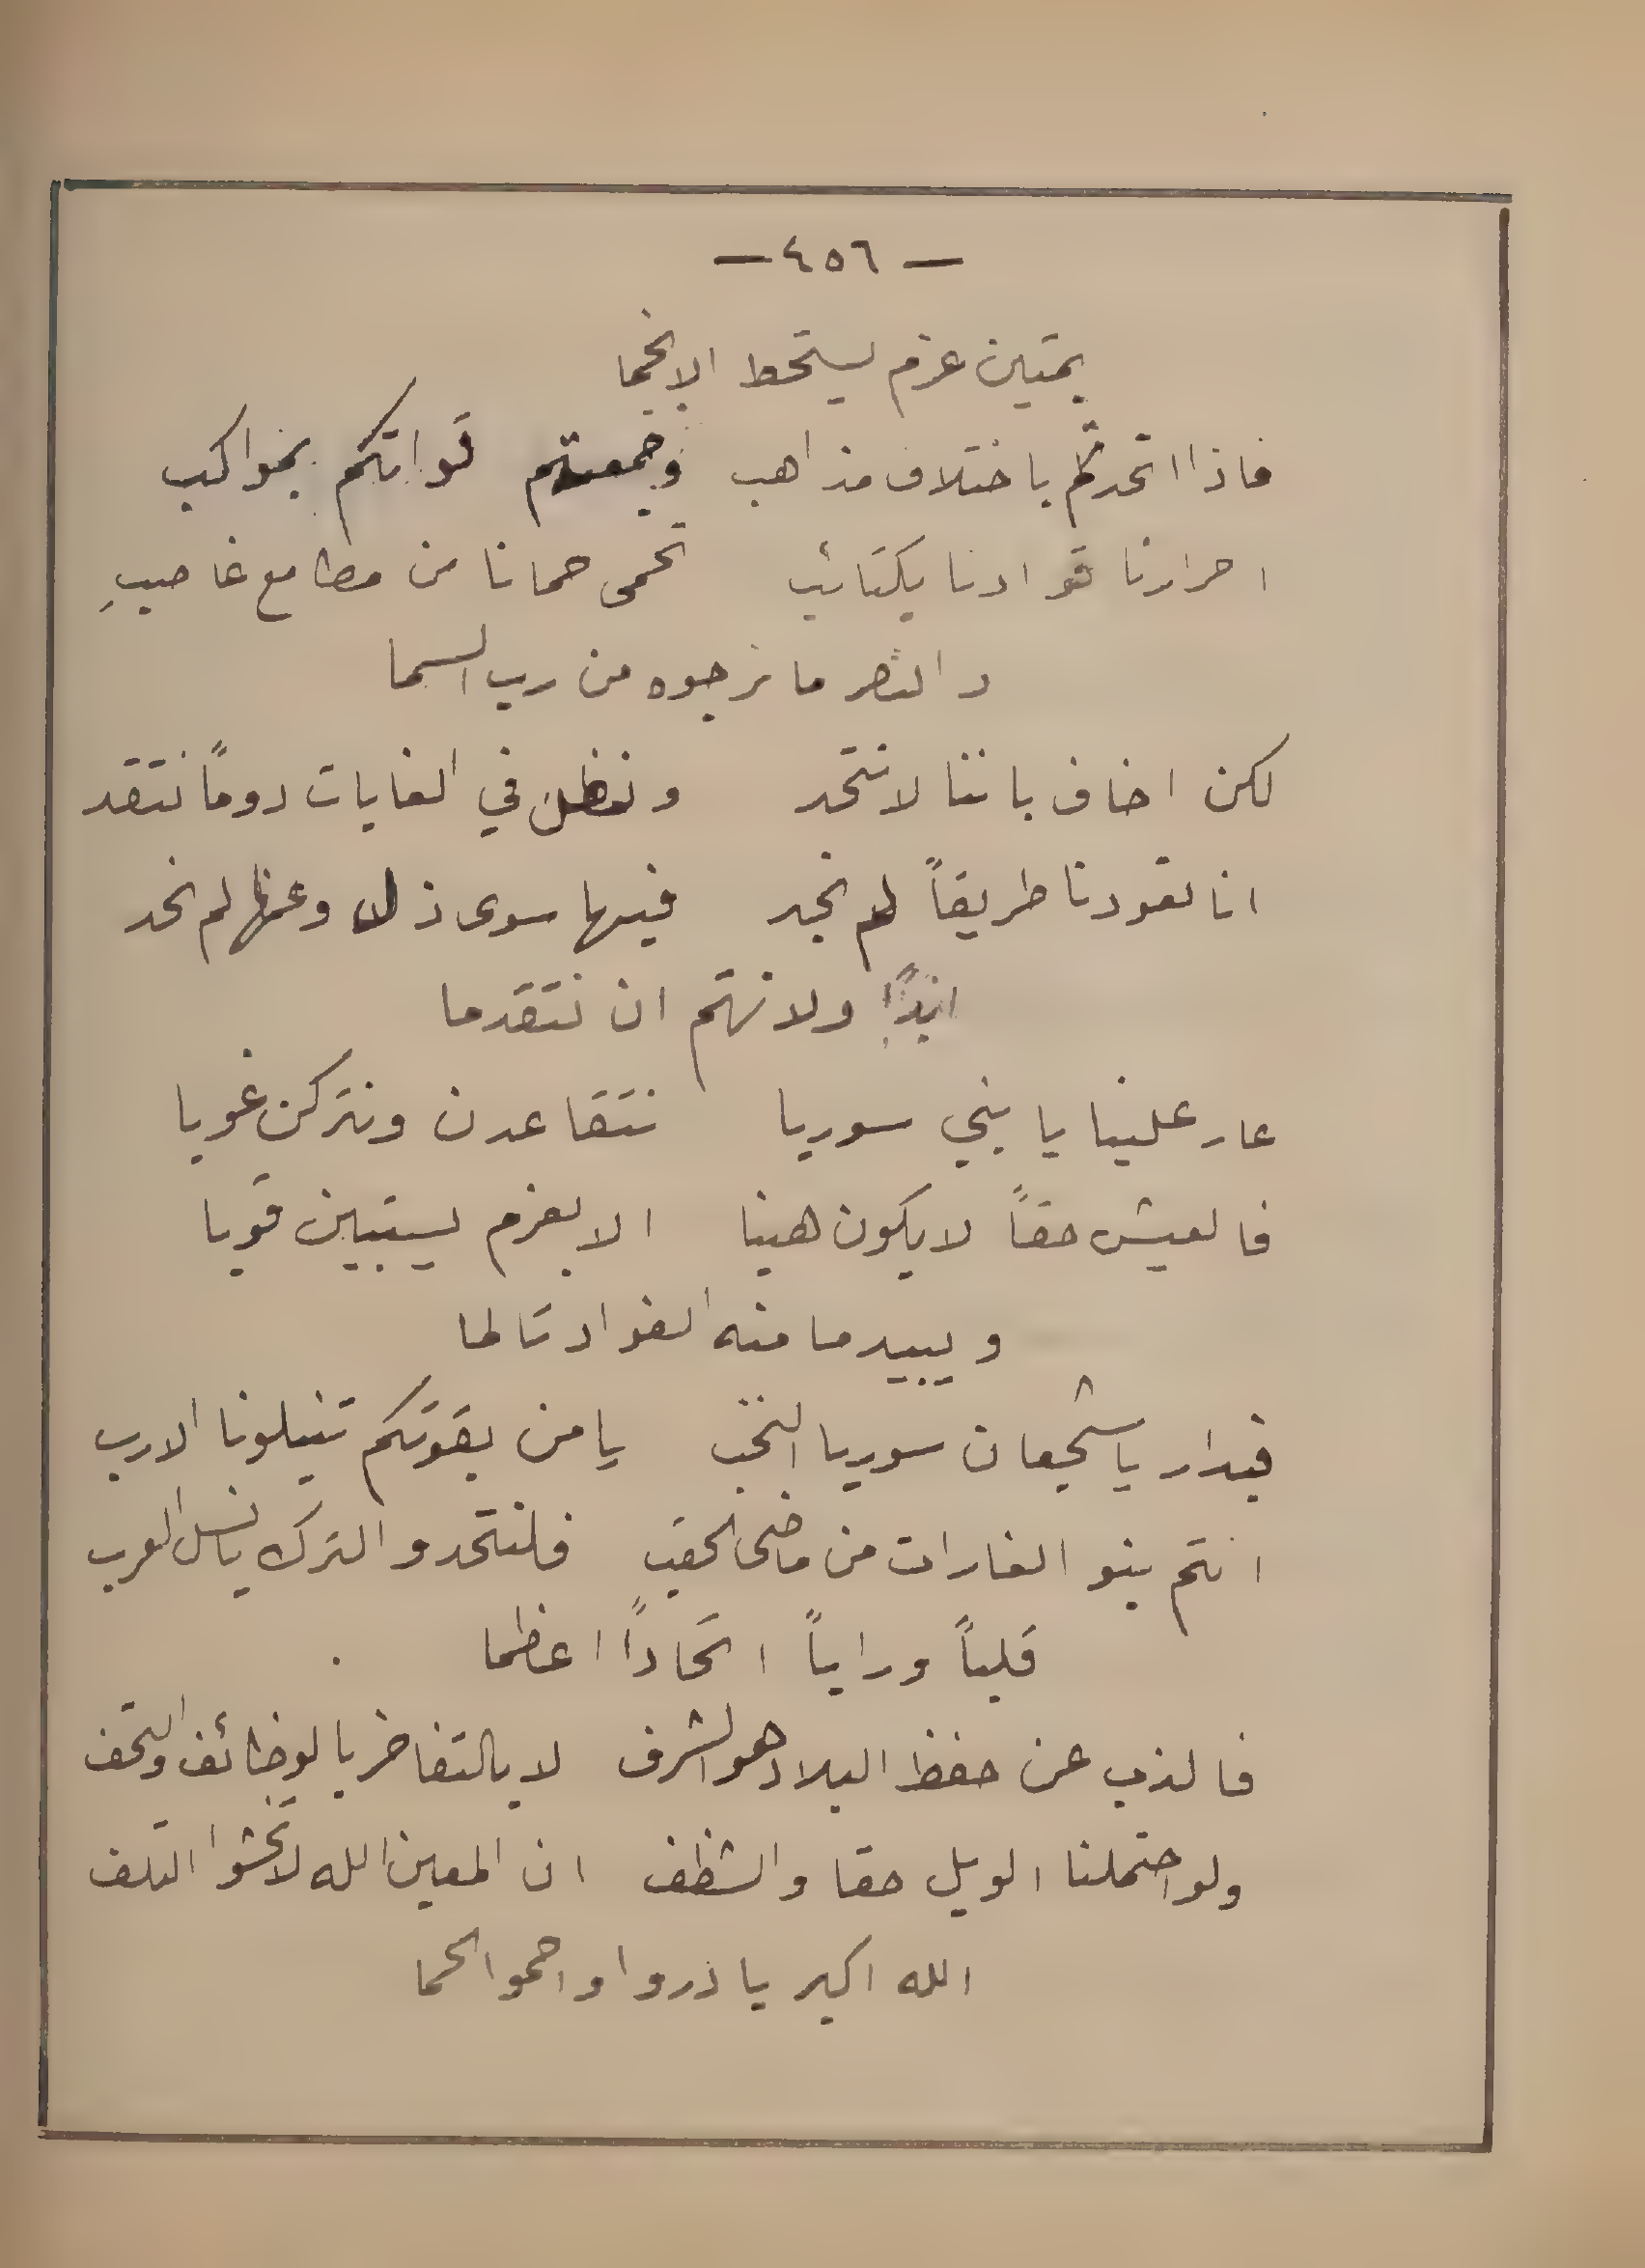 — ٤٥٦ —
بمتين عزم يستحط الانجما
فاذا اتحدتم باختلاف مذاهب وجمعتم قواتكم بمواكب
احرارنا قوادنا بكتائب تحمى حمانا من مطامع غاصبِ
والنصر ما نرجوه من رب السما
لكن اخاف باننا لا نتحد ونظلن في الغايات دوماً ننتقد
انا تقودنا طريقاً لم نجد فيها سوى ذل وعنها لم نحد
ابداً ولا نهتم ان نتقدما
عار علينا يا بني سوريا نتقاعدن ونتركن غويا
فالعيش حقاً لا يكون هينا الا بعزم يستبين قويا
ويبيد ما منه الفواد تالما
فبدار يا شجعان سوريا النخب يا من بقوتكم تنيلونا الارب
انتم بنو الغارات من ماضى الحقب فلنتحد والترك يا نسل العرب
قلباً وراياً اتحاداً اعظما
فالذب عن حفظ البلاد هو الشرف لا بالتفاخر بالوظائف والتحف
ولو احتملنا الويل حقا والشظف ان المعين الله لا تخشوا التلف
الله اكبر بادروا واحموا الحما